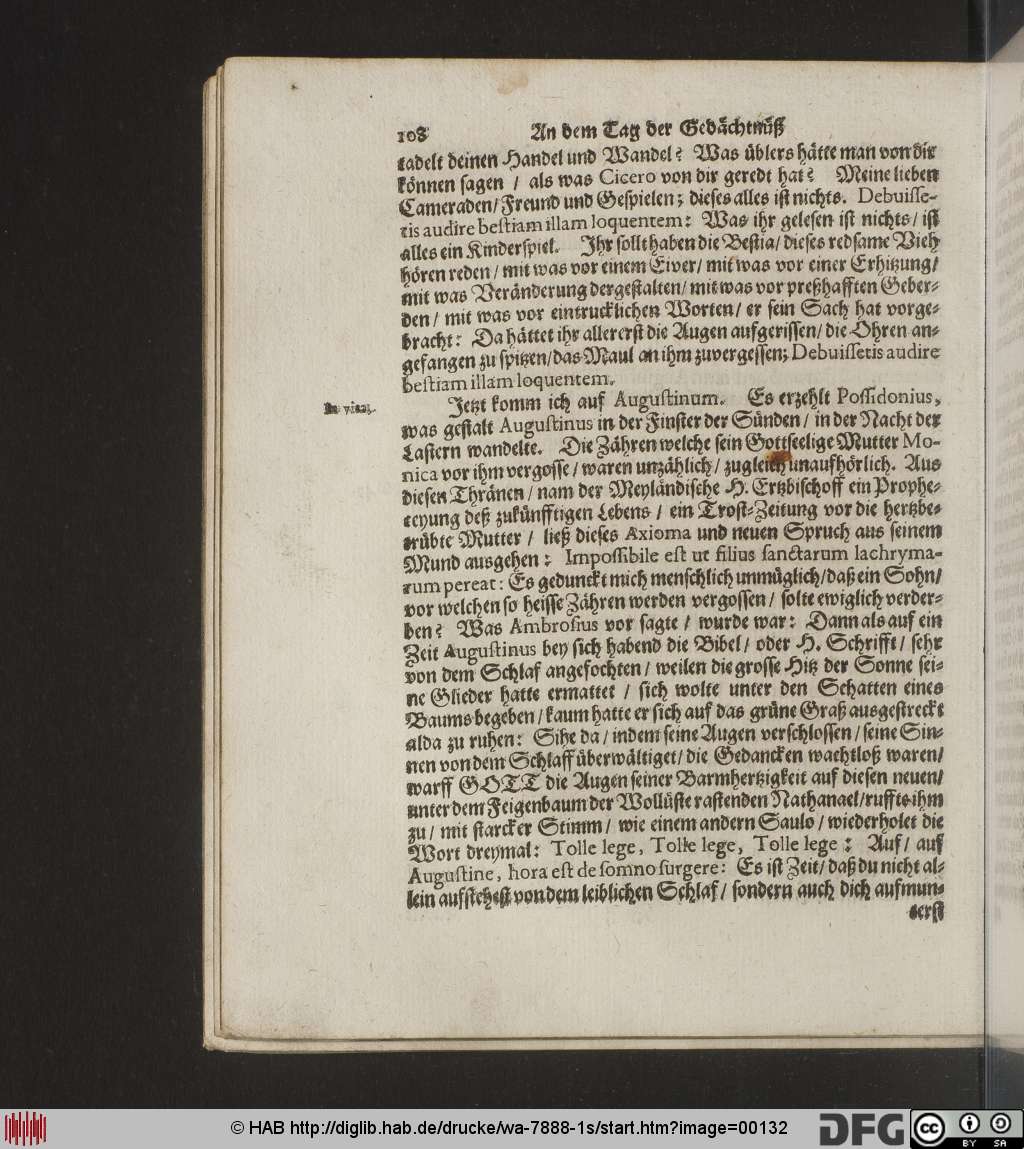 108 An dem Tag der Gedächtnüß
tadelt deinen Handel und Wandel? Was üblers hätte man von dir
können sagen / als was Cicero von dir geredt hat? Meine lieben
Cameraden/ Freund und Gespielen; dieses alles ist nichts. Debuisse-
tis audire bestiam illam loquentem: Was ihr gelesen ist nichts/ ist
alles ein Kinderspiel. Ihr sollt haben die Bestia/ dieses redsame Vieh
hören reden/ mit was vor einem Eiver/ mit was vor einer Erhitzung/
mit was Veränderung der gestalten/ mit was vor preßhafften Geber-
den/ mit was vor eintrucklichen Worten/ er sein Sach hat vorge-
bracht: Da hättet ihr allererst die Augen aufgerissen/ die Ohren an-
gefangen zu spitzen/ das Maul an ihm zuvergessen; Debuissetis audire
bestiam illam loquentem.
In vita.
Jetzt komm ich auf Augustinum. Es erzehlt Possidonius,
was gestalt Augustinus in der Finster der Sünden/ in der Nacht der
Lastern wandelte. Die Zähren welche sein Gottseelige Mutter Mo-
nica vor ihm vergosse/ waren unzählich/ zugleich unaufhörlich. Aus
diesen Thränen/ nam der Meyländische H. Ertzbischoff ein Prophe-
teyung deß zukünfftigen Lebens/ ein Trost-Zeitung vor die hertzbe-
trübte Mutter/ ließ dieses Axioma und neuen Spruch aus seinem
Mund ausgehen: Impossibile est ut filius sanctarum lachryma-
rum pereat: Es gedunckt mich menschlich unmüglich/ daß ein Sohn/
vor welchen so heisse Zähren werden vergossen/ solte ewiglich verder-
ben? Was Ambrosius vor sagte/ wurde war: Dann als auf ein
Zeit Augustinus bey sich habend die Bibel/ oder H. Schrifft/ sehr
von dem Schlaf angefochten/ weilen die grosse Hitz der Sonne sei-
ne Glieder hatte ermattet/ sich wolte unter den Schatten eines
Baums begeben/ kaum hatte er sich auf das grüne Graß ausgestreckt
alda zu ruhen: Sihe da/ indem seine Augen verschlossen/ seine Sin-
nen von dem Schlaff überwältiget/ die Gedancken wachtloß waren/
warff GOTT die Augen seiner Barmhertzigkeit auf diesen neuen/
unter dem Feigenbaum der Wollüste rastenden Nathanael/ ruffte ihm
zu/ mit starcker Stimm/ wie einem andern Saulo/ wiederholet die
Wort dreymal: Tolle lege, Tolle lege, Tolle lege: Auf/ auf
Augustine, hora est de somno surgere: Es ist Zeit/ daß du nicht al-
lein aufstehest von dem leiblichen Schlaf/ sondern auch dich aufmun-
terst
© HAB http://diglib.hab.de/drucke/wa-7888-1s/start.htm?image=00132
DFG
cc BY SA